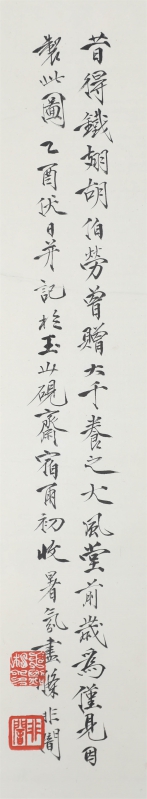 昔得鐵翅胡伯勞曾贈大千養之大風堂前歲為僅見因
製此圖乙酉伏日并記於玉山硯齋宿雨初收暑氣盡滌非闇